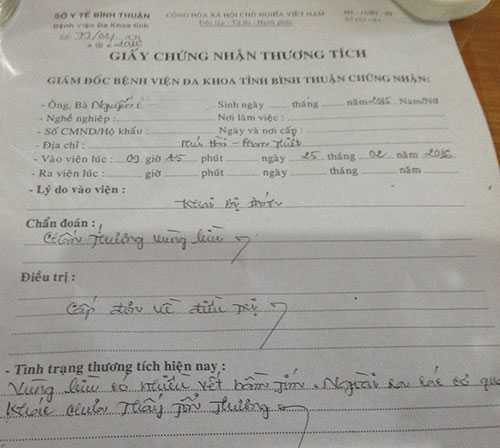 SỞ Y TẾ BÌNH THUẬN
CỘNG HÒA XÃ HỘI CHỦ NGHĨA VIỆT NAM
Bệnh viện Đa Khoa tỉnh
Độc lập - Tự do - Hạnh phúc
GIẤY CHỨNG NHẬN THƯƠNG TÍCH
GIÁM ĐỐC BỆNH VIỆN ĐA KHOA TỈNH BÌNH THUẬN CHỨNG NHẬN:
- Ông, Bà Nguyễn Sinh ngày tháng năm Nam/Nữ
- Nghề nghiệp : Nơi làm việc :
- Số CMND/Hộ khẩu : Ngày và nơi cấp :
- Địa chỉ : - Phan Thiết
- Vào viện lúc : 09 giờ 15 phút ngày 25 tháng 02 năm
- Ra viện lúc : giờ phút ngày tháng năm
- Lý do vào viện :
Khai bị đánh
Chẩn đoán :
Chấn thương vùng lưng
Điều trị :
Cấp đơn về điều trị
- Tình trạng thương tích hiện nay :
Vùng lưng có nhiều vết bầm tím. Ngoài ra các cơ
khác chưa thấy tổn thương